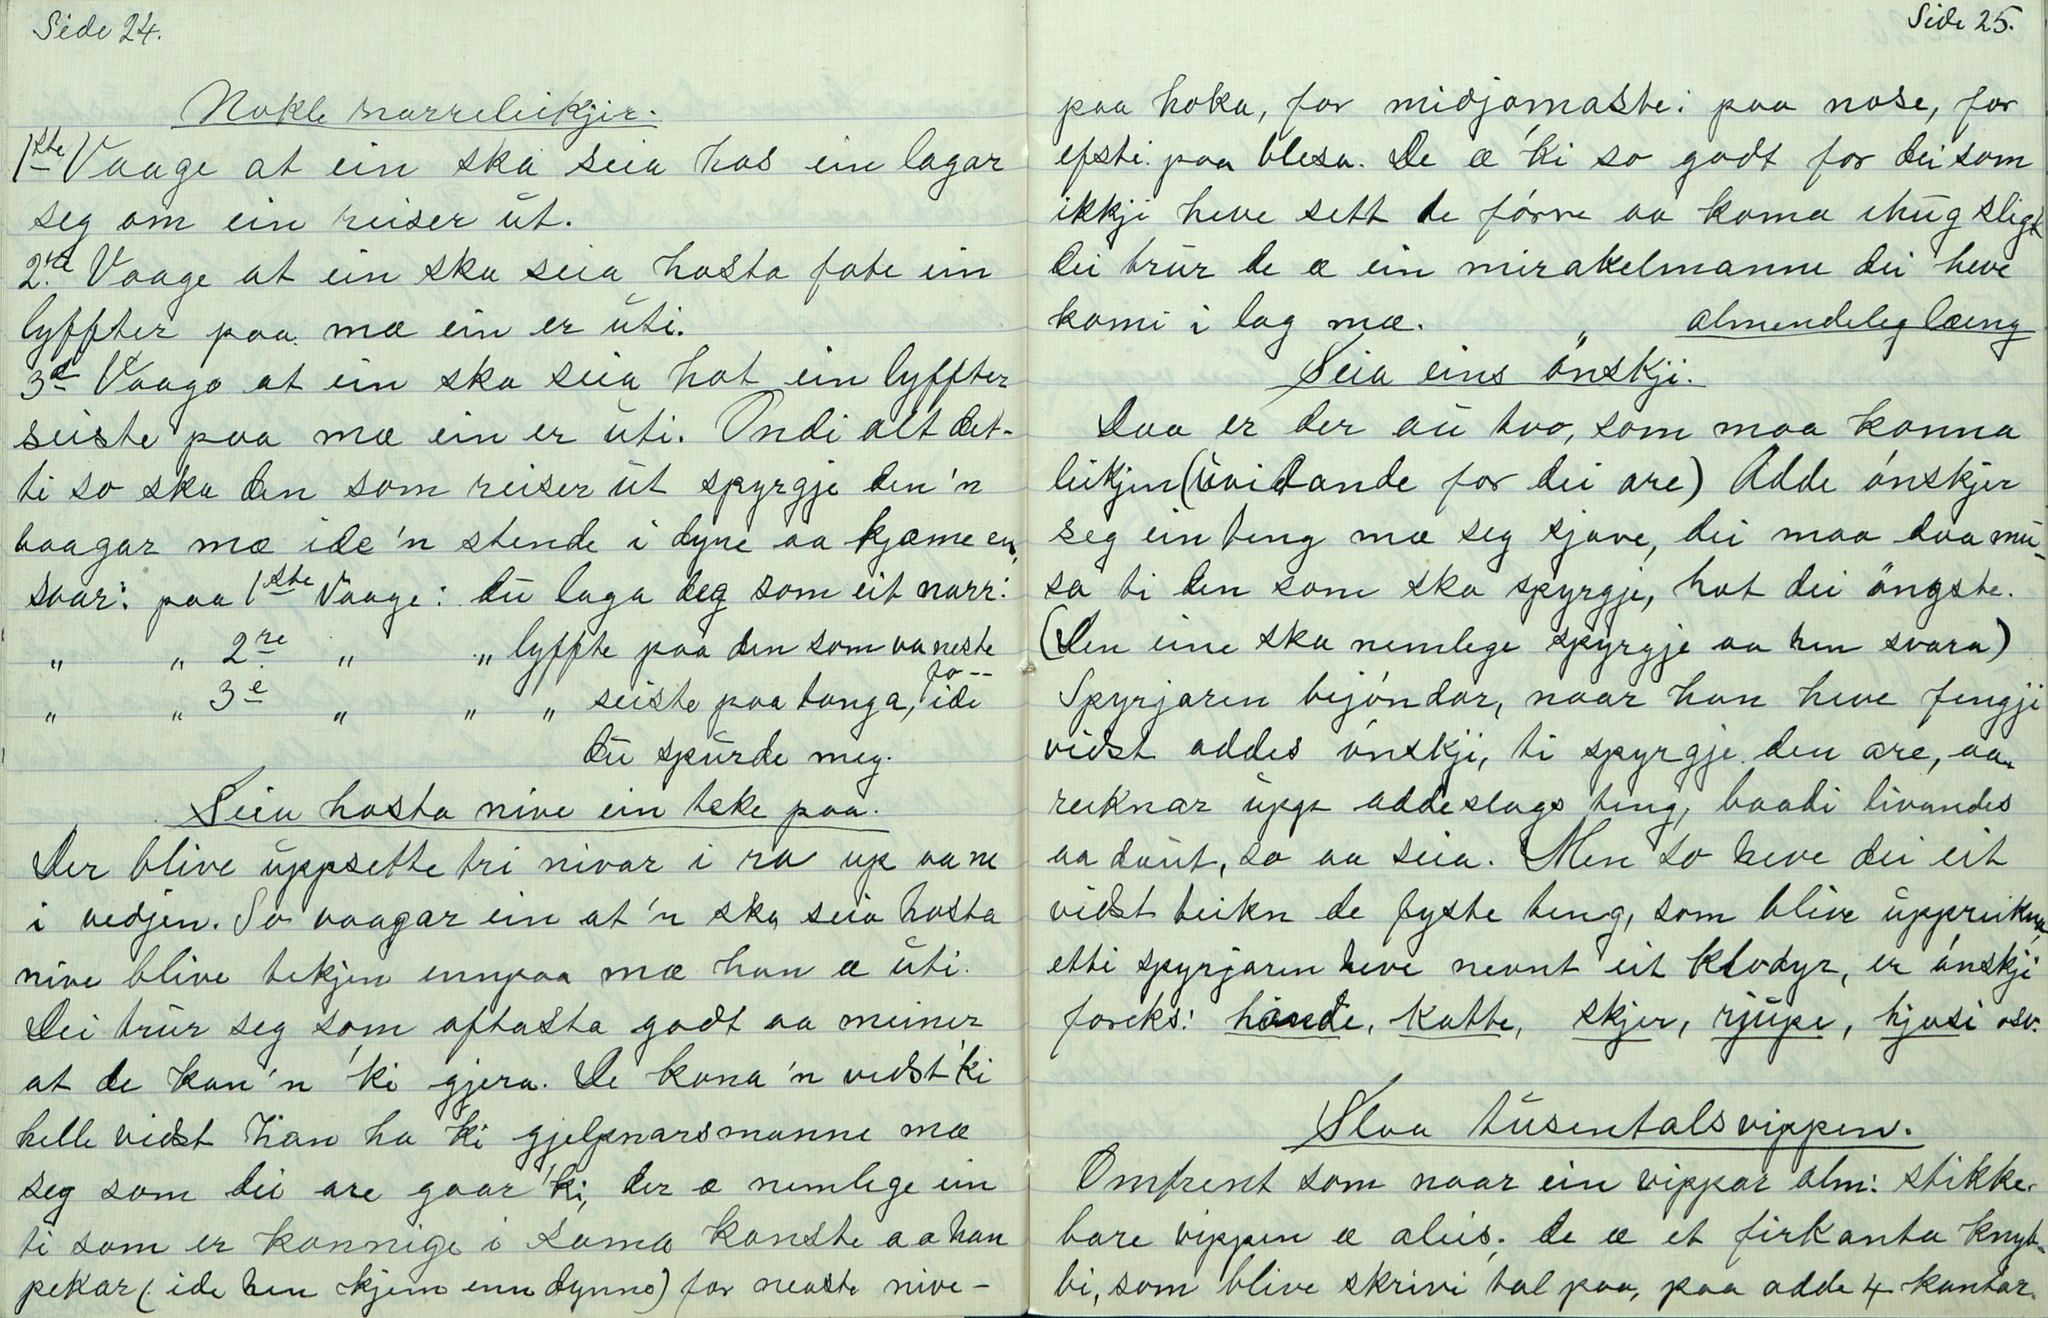 Side 24.
Nokle narreleikjir.
1ste Vaage at ein ska seia hos ein lagar
seg om ein reiser ūt.
2re Vaage at ein ska seia hosta fote ein
lyffter paa mæ ein er ūti.
3e Vaage at ein ska seia hot ein lyffter
seiste paa mæ ein er ūti. Ondi alt det-
ti so ska den som reiser ūt spyrgje den 'n
vaagar mæ ide 'n stende i dyne aa kjæme en,
svar: paa 1ste Vaage: dū laga deg som eit narr:
„ „ 2re „ „ lyffte paa den som va neste
„ „ 3e „ „ „ seiste paa tonga, fo-- ide
dū spūrde meg.
Seia hosta nive ein teke paa.
Der blive ūppsette tri nivar i ra up aa ne
i vedjen. So vaagar ein at 'n ska seia hosta
nive blive tekjen ennpaa mæ han æ ūti.
Dei trūr seg som oftasta godt aa meiner
at de kan 'n 'ki gjera. De kona 'n vidst 'ki
helle vidst han ha 'ki gjelpnarsmanne mæ
seg som dei are gaar 'ki, der æ nemlege ein
ti som er konnige i sama konste aa han
pekar (ide hen kjem enn dynno) for neaste nive-
Side 25.
paa hoka, for midjomaste: paa nose, for
efsti paa blesa. De æ 'ki so godt for dei som
ikkji heve sett de fórre aa koma ihūg sligt
dei trūr de æ ein mirakelmanne dei heve
komi i lag mæ. „ almendeleg læeng
Seia eins ónskji.
Daa er der aū tvo, som maa konna
leikjen (ūvidande for dei are) Adde ónskjer
seg ein teng mæ seg sjøve, dei maa daa mū-
sa ti den som ska spyrgje, hot dei öngste.
(Den eine ska nemlege spyrgje aa hen svara)
Spyrjaren bejóndar, naar han heve fengji
vidst addes ónskji, ti spyrgje den are, aa
reiknar ūpp addeslags teng, baadi livandes
aa daūt, so aa seia. Men so heve dei eit
vidst teikn de fyste teng, som blive ūppreikna,
etti spyrjaren heve nevnt eit klodyr, er ónskji
foreks: honde, katte, skjer, rjūpe, hjasi osv.
Slaa tūsentalsvippen.
Omfrent som naar ein vippar alm: stikke-
bare vippen æ aleis; de æ et firkanta knyt-
ti, som blive skrivi tal paa, paa adde 4 kantar.